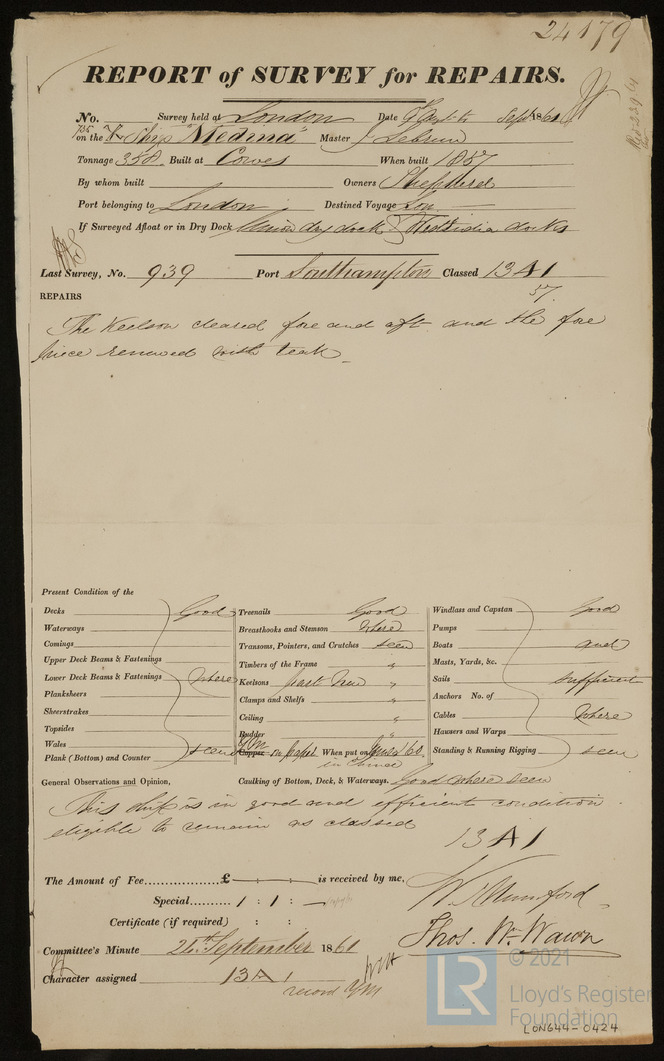 24179
REPORT of SURVEY for REPAIRS.
No. Survey held at London Date Sept 1861
on the Ship "Medina" Master J Lebrun
Tonnage 358. Built at Cowes When built 1857
By whom built Owners
Port belonging to London Destined Voyage Lon
If Surveyed Afloat or in Dry Dock Union dry dock & West India docks
Last Survey, No. 939 Port Southampton Classed 13A1
57.
REPAIRS
The Keelson cleared fore and aft and the fore
piece renewed with teak
Present Condition of the
Decks Good
Waterways
Comings
Upper Deck Beams & Fastenings
Lower Deck Beams & Fastenings where
Planksheers
Sheerstrakes
Topsides
Wales
Plank (Bottom) and Counter seen
Treenails Good
Breasthooks and Stemson where
Transoms, Pointers, and Crutches seen
Timbers of the Frame "
Keelsons part New "
Clamps and Shelfs "
Ceiling "
Rudder "
Copper YM on paper When put on June 60.
in China
Windlass and Capstan Good
Pumps
Boats and
Masts, Yards, &c.
Sails sufficient
Anchors No. of
Cables where
Hawsers and Warps
Standing & Running Rigging seen
General Observations and Opinion, Caulking of Bottom, Deck, & Waterways. Good where seen
This ship is in good and efficient condition.
eligible to remain as classed
13A1
The Amount of Fee £ : : is received by me,
Special 1 : 1 : –
Certificate (if required) : :
W Mumford
Thos. Wm Wawn
Committee's Minute 24th September 1861
Character assigned 13A1
record YM
© 2021
LR
Lloyd's Register
Foundation
LON644-0424